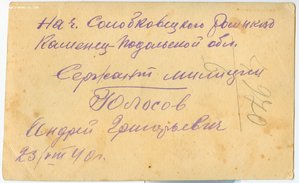 Нач. Солобковецкого Роминкво
Каменец-Подольской обл.
Сержант милиции
Юлосов
Андрей Григорьевич
23/VIII 40 г.